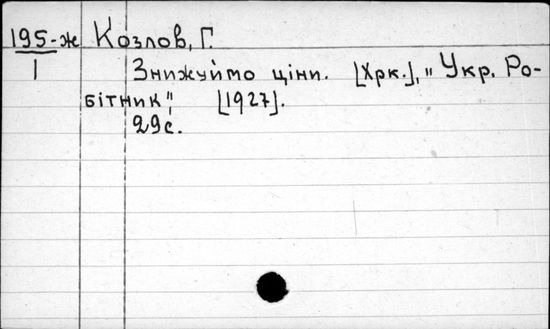 195-ж Козлов, Г.
1 Знижуймо ціни. [Хрк.], „Укр. Ро-
бітник", [1927].
29с.